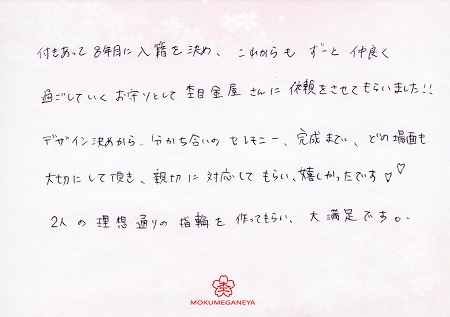 付きあって8年目に入籍を決め、これからもずーと仲良く
過ごしていくお守りとして杢目金屋さんに依頼をさせてもらいました!!
デザイン決めから、分かち合いのセレモニー、完成まで、どの場面も
大切にして頂き、親切に対応してもらい、嬉しかったです♡♡
2人の理想通りの指輪を作ってもらい、大満足です。
MOKUMEGANEYA